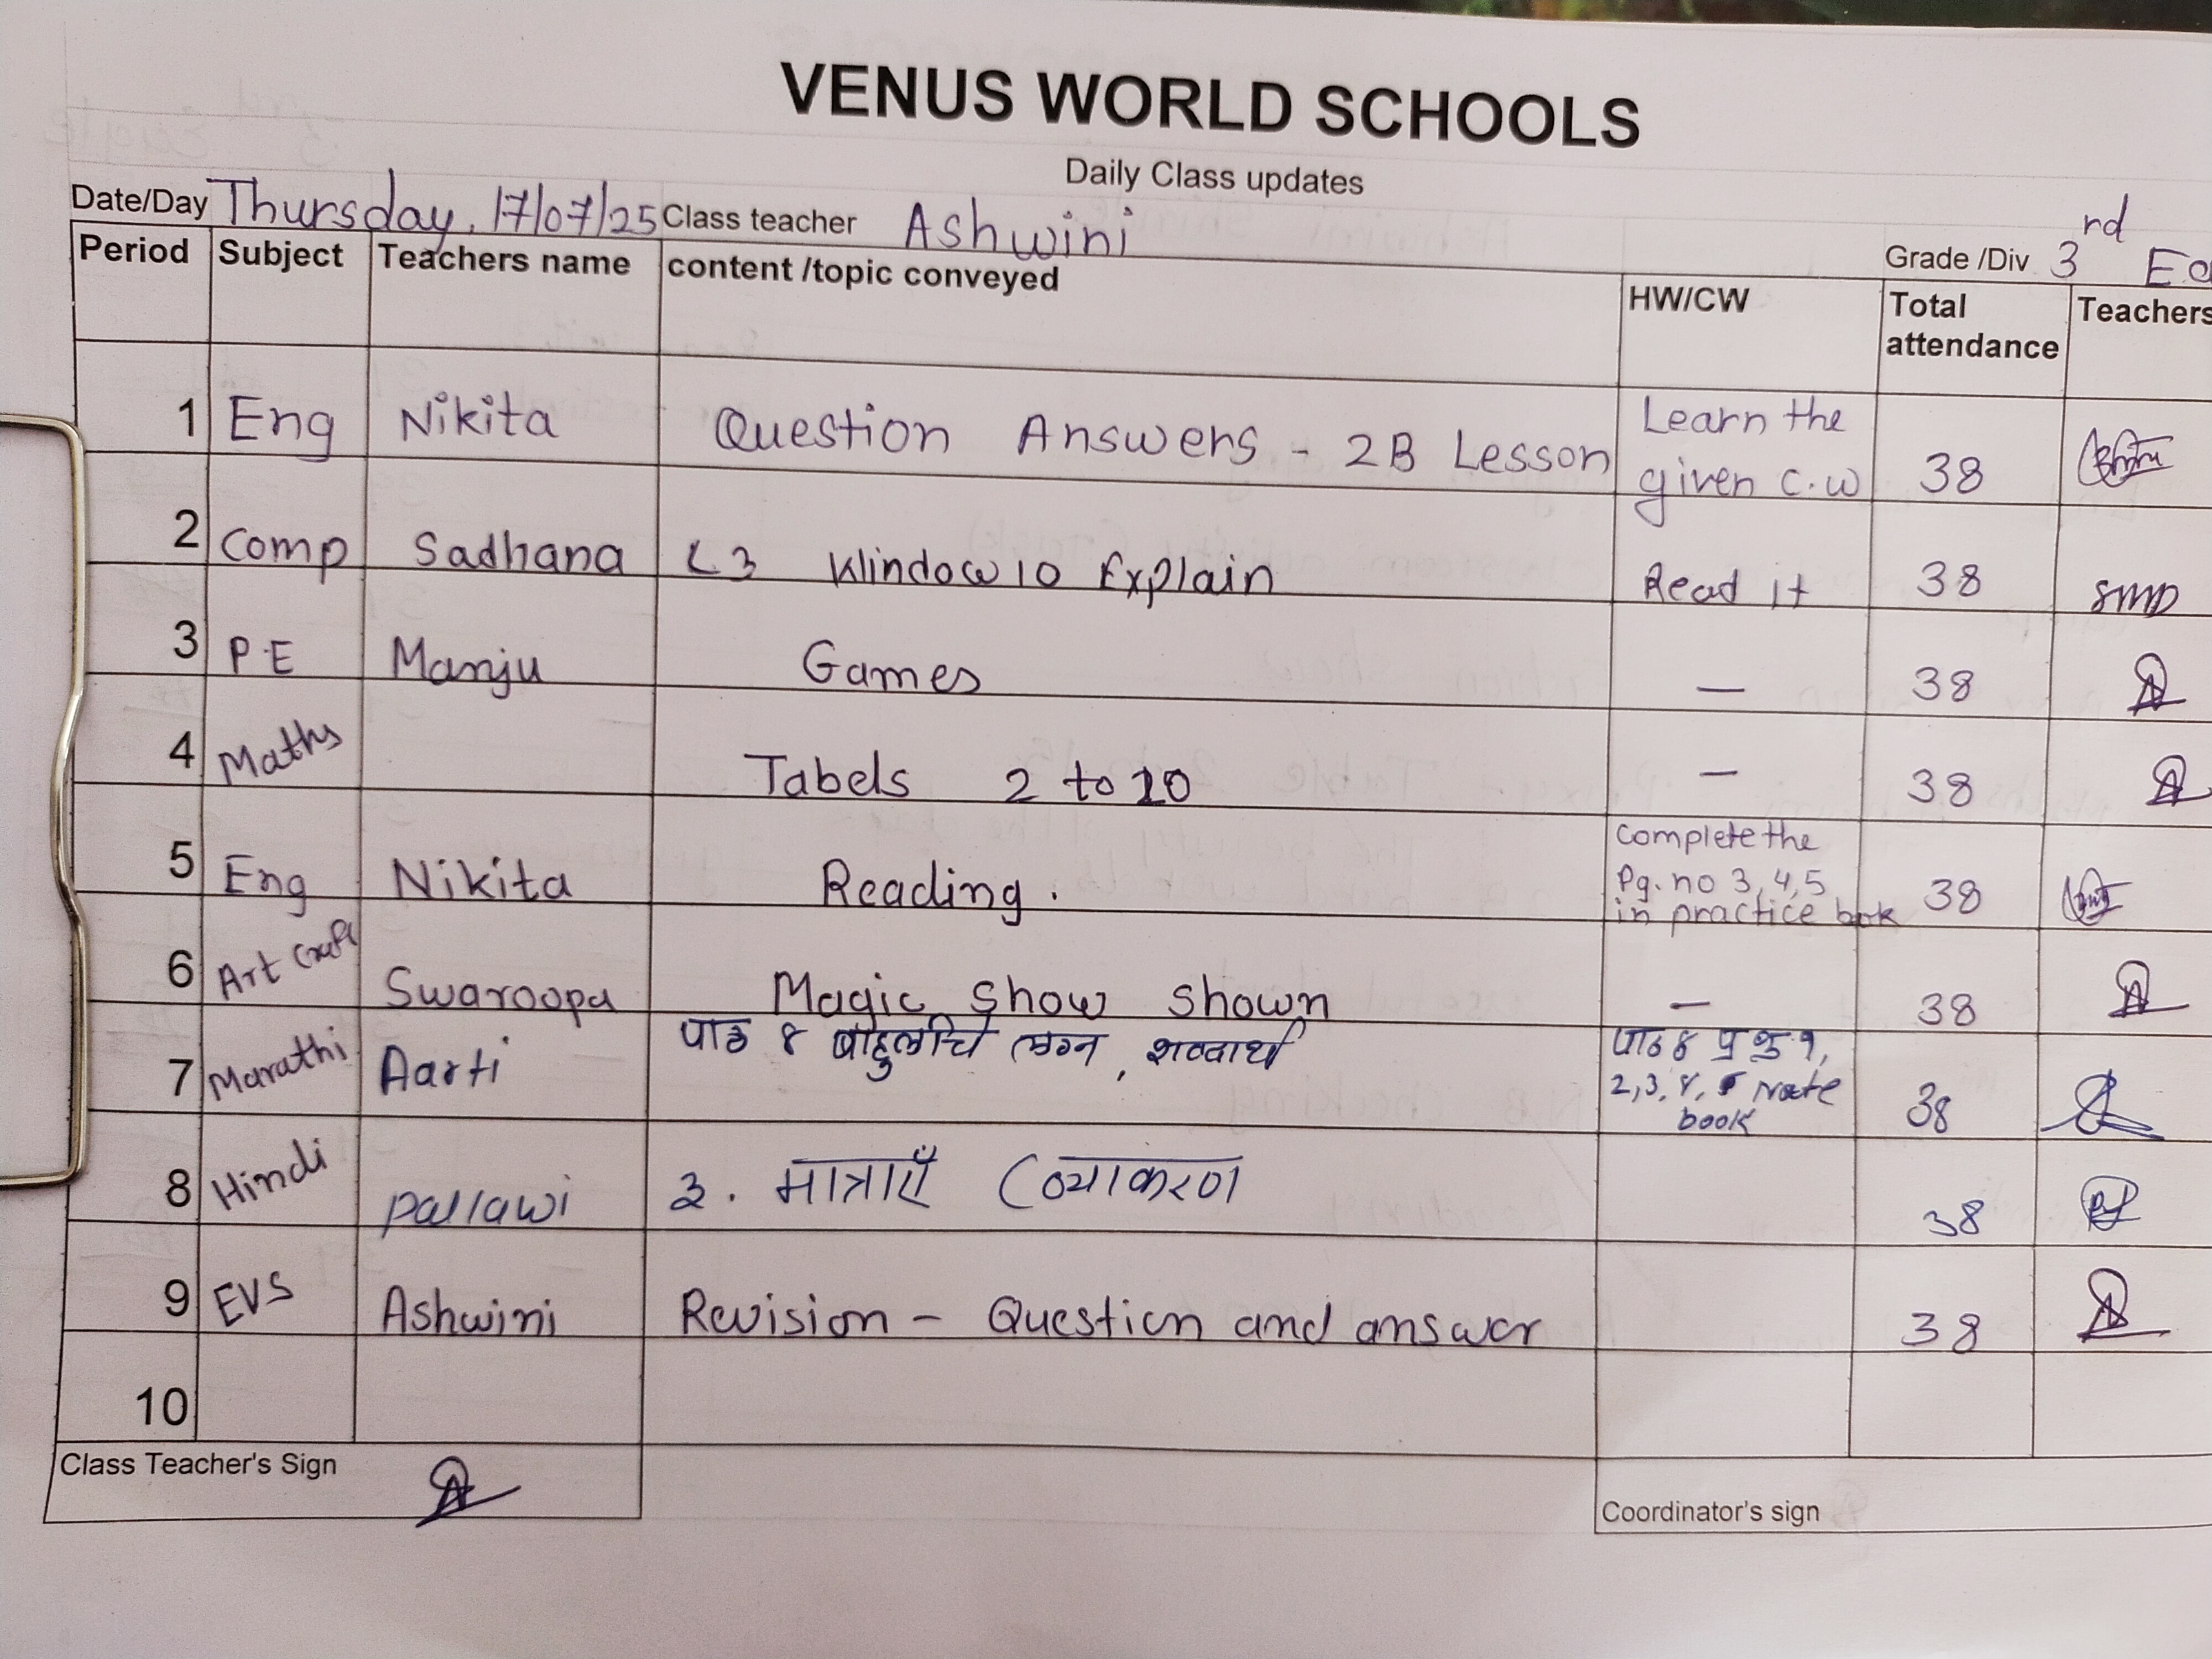 VENUS WORLD SCHOOLS
Daily Class updates
Date/Day Thursday, 17/07/25 Class teacher Ashwini Grade /Div 3rd
Period Subject Teachers name content /topic conveyed HW/CW Total attendance Teachers
1 Eng Nikita Question Answers - 2B Lesson Learn the given c.w 38
2 Comp Sadhana L3 Window 10 Explain Read it 38 SMD
3 P.E Manju Games — 38
4 Maths Tabels 2 to 10 — 38
5 Eng Nikita Reading. Complete the Pg. no 3,4,5 in practice book 38
6 Art Craft Swaroopa Magic show shown — 38
7 Marathi Aarti पाठ ४ बाहुलीचे लग्न, शब्दार्थ पाठ ४ प्र क्र १, 2,3,४, Note book 38
8 Hindi Pallawi 3. मात्राएँ (व्याकरण 38
9 EVS Ashwini Revision - Question and answer 38
10
Class Teacher's Sign
Coordinator's sign